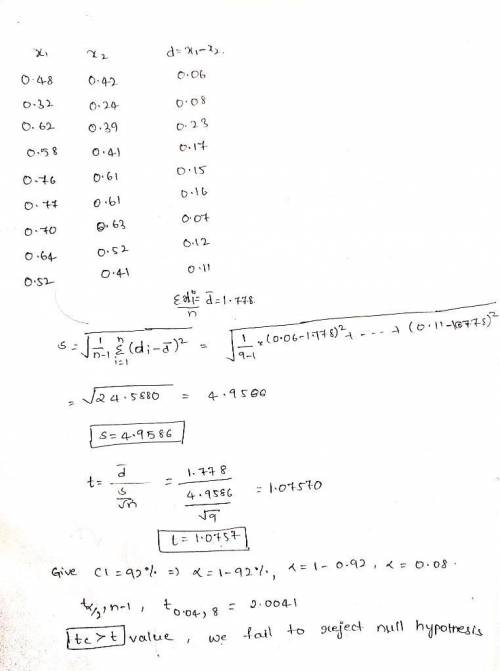 x₁ x₂ d=x₁-x₂.
0.48 0.42 0.06
0.32 0.24 0.08
0.62 0.39 0.23
0.58 0.41 0.17
0.76 0.61 0.15
0.77 0.61 0.16
0.70 0.63 0.07
0.64 0.52 0.12
0.52 0.41 0.11
Σdi/n = d̄=1.778
s=√(1/(n-1) Σⁿᵢ₌₁ (di-d̄)²) = √(1/(9-1) × (0.06-1.778)² + --- + (0.11-1.0778)²)
= √24.5880 = 4.9586
s=4.9586
t= d̄/(s/√n) = 1.778/(4.9586/√9) =1.07570
t=1.0757
Give CI=92% => α=1-92%, α=1-0.92, α=0.08.
tα/2, n-1, t0.04, 8 = 2.0041
tc>t value, we fail to reject null hypotnesis